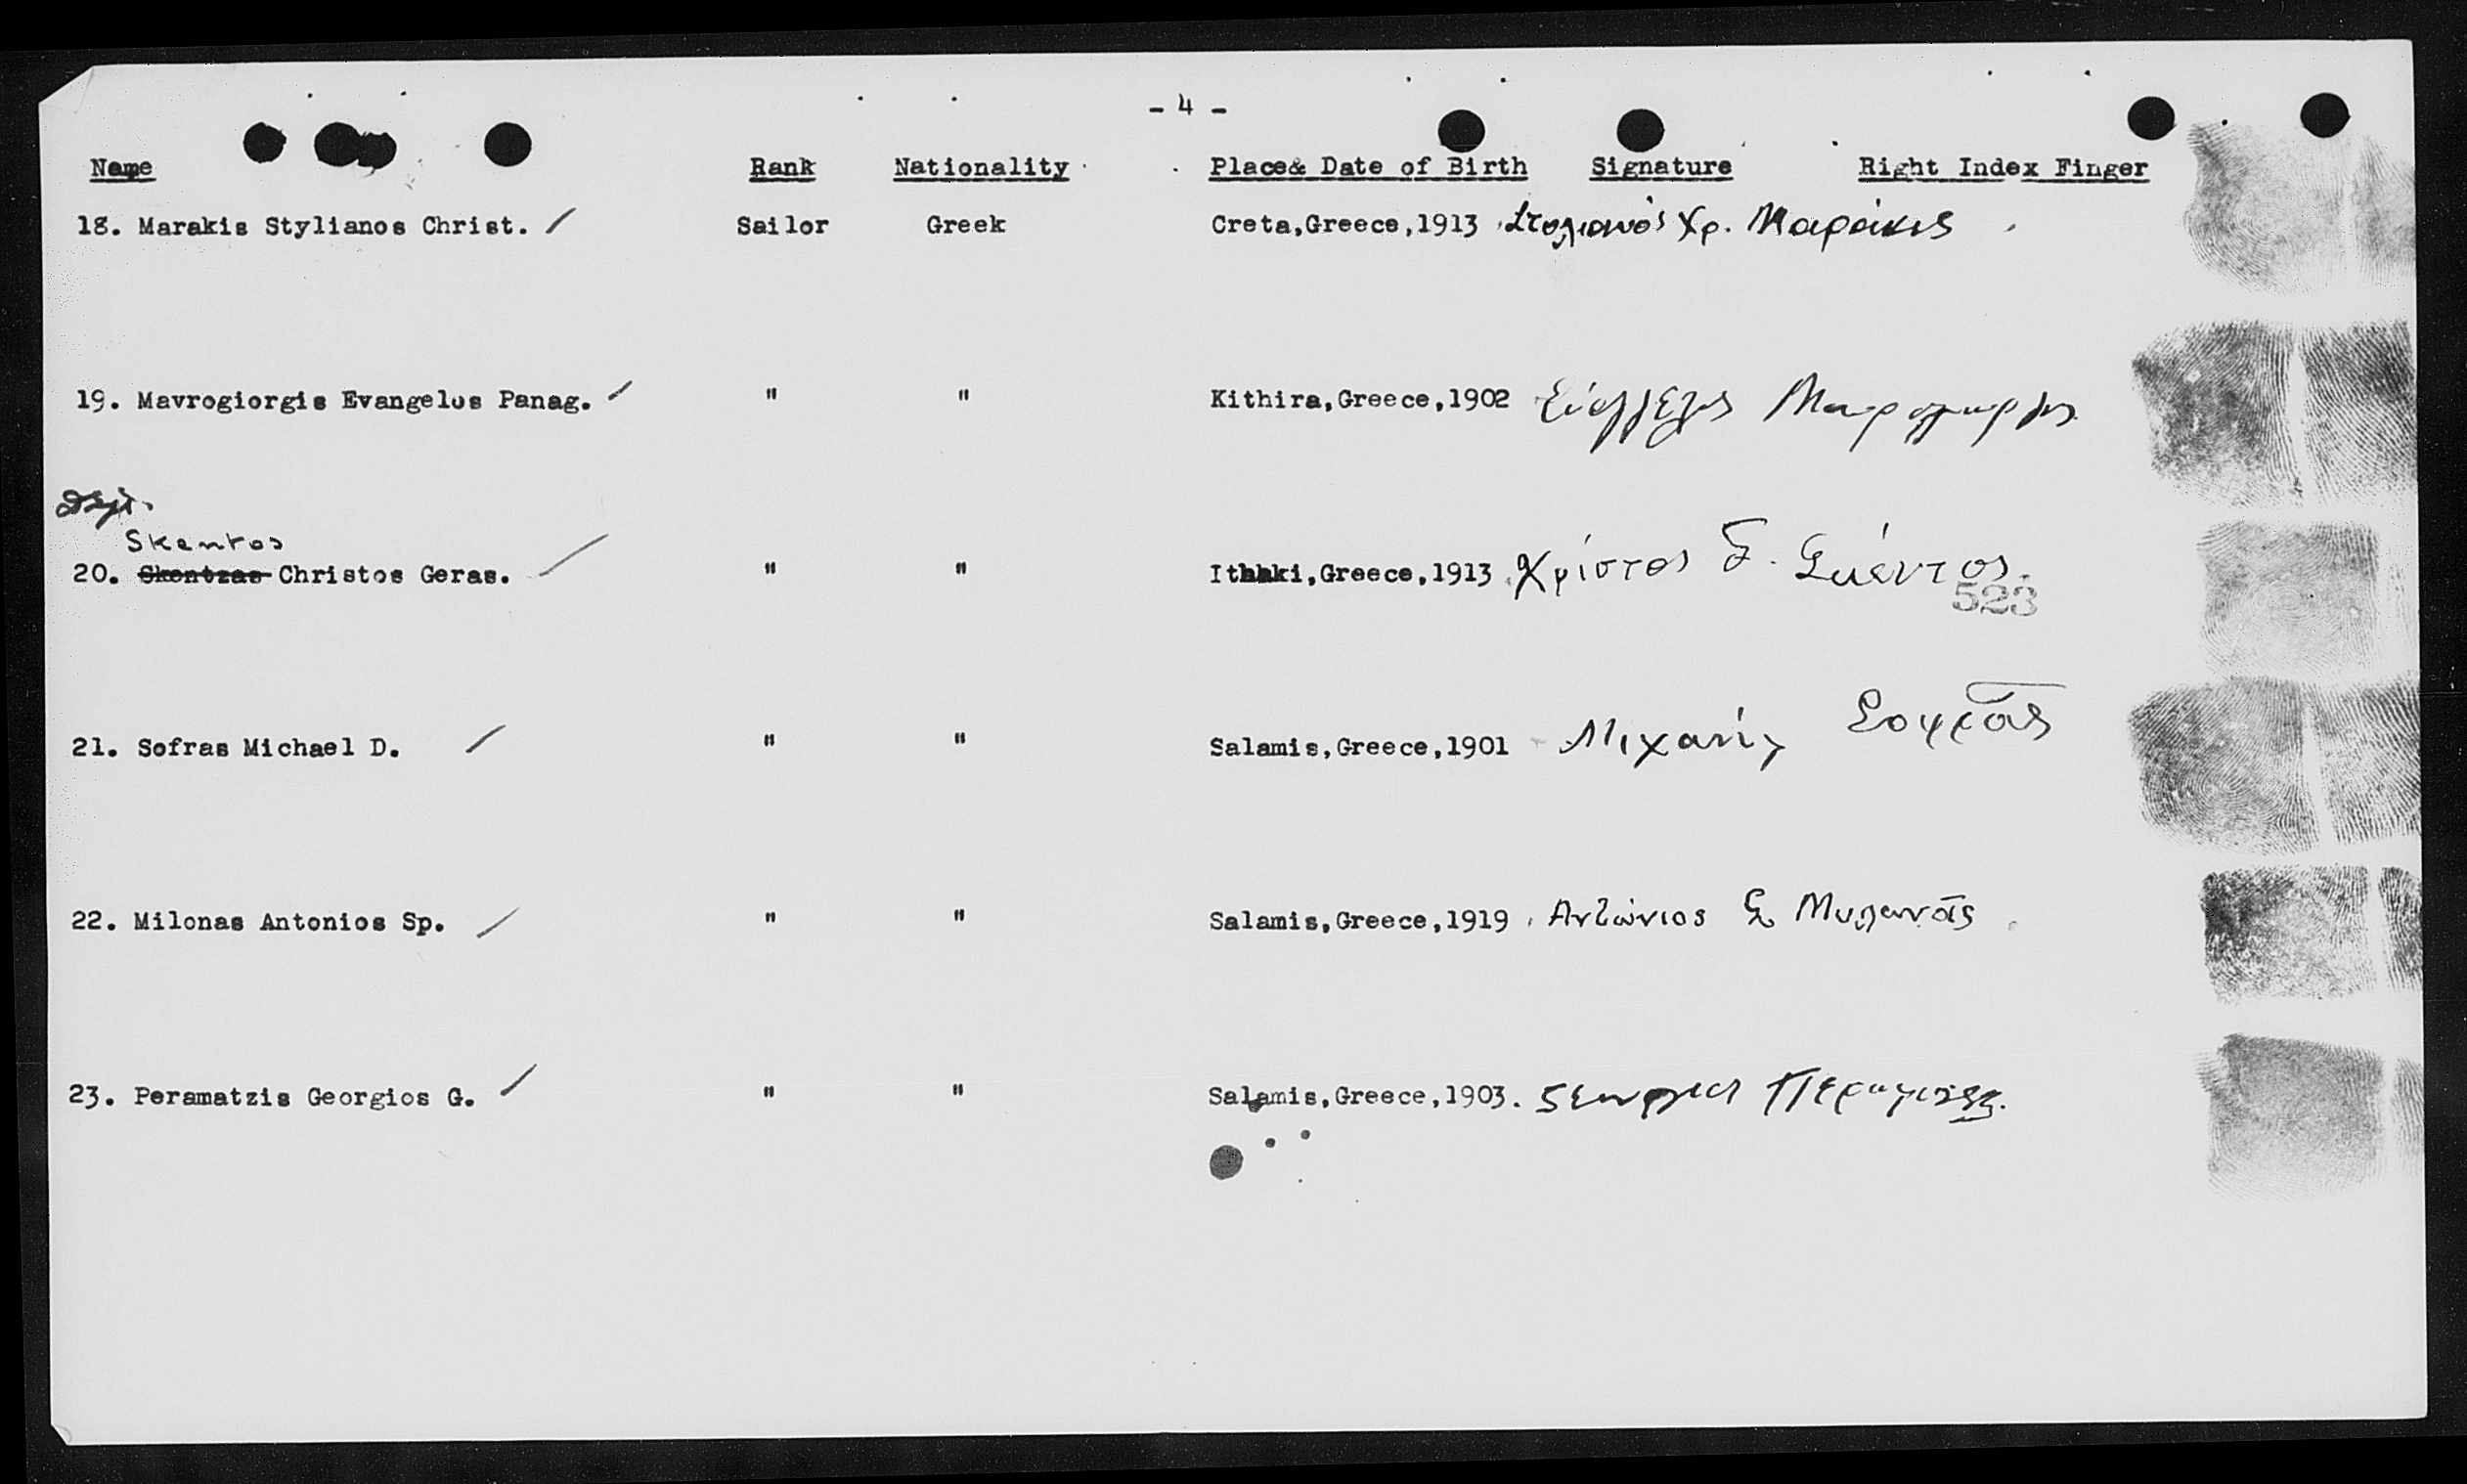 - 4 -
Name Rank Nationality Place& Date of Birth Signature Right Index Finger
18. Marakis Stylianos Christ. / Sailor Greek Creta,Greece,1913 Στυλιανός Χρ. Μαράκις
19. Mavrogiorgis Evangelos Panag. / " " Kithira,Greece,1902 Εὐάγγελος Μαυρογιωργης
Skentos
20. Skentzas Christos Geras. / " " Ithaki,Greece,1913 Χρίστος Γ. Σκέντος.
523
21. Sofras Michael D. / " " Salamis,Greece,1901 Μιχαήλ Σοφρᾶς
22. Milonas Antonios Sp. / " " Salamis,Greece,1919 Αντώνιος Σ Μυλωνᾶς
23. Peramatzis Georgios G. / " " Salamis,Greece,1903. Γεωργιος Περαματζης.